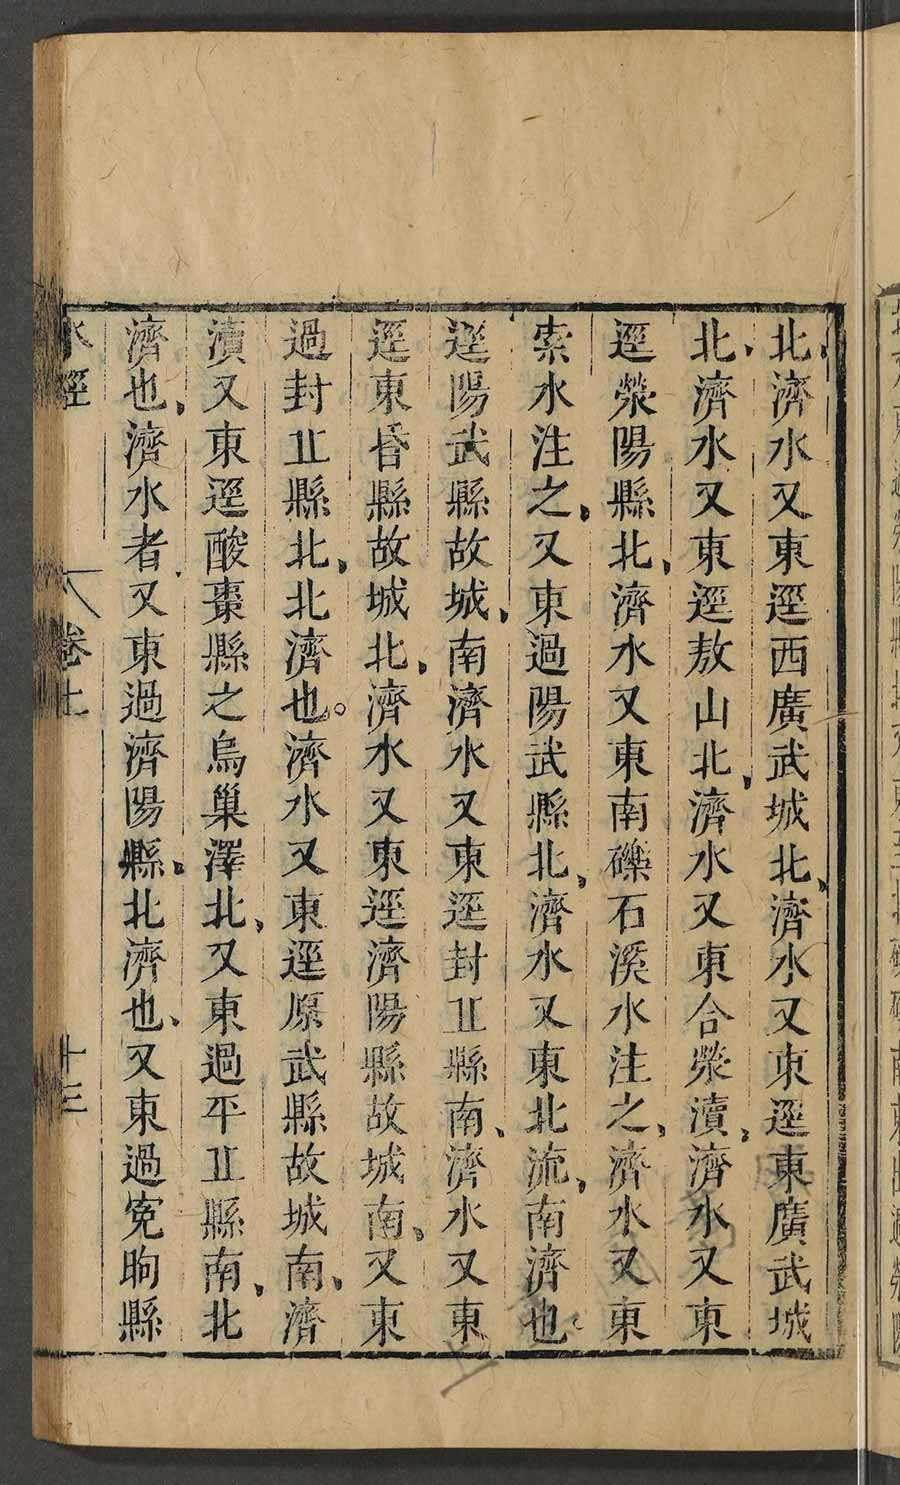 北濟水又東逕西廣武城北濟水又東逕東廣武城
北濟水又東逕敖山北濟水又東合滎瀆濟水又東
逕滎陽縣北濟水又東南礫石溪水注之濟水又東
索水注之又東過陽武縣北濟水又東北流南濟也
逕陽武縣故城南濟水又東逕封丘縣南濟水又東
逕東昏縣故城北濟水又東逕濟陽縣故城南又東
過封丘縣北北濟也濟水又東逕原武縣故城南濟
瀆又東逕酸棗縣之烏巢澤北又東過平丘縣南北
濟也濟水者又東過濟陽縣北濟也又東過寃朐縣
水經 卷七 十三